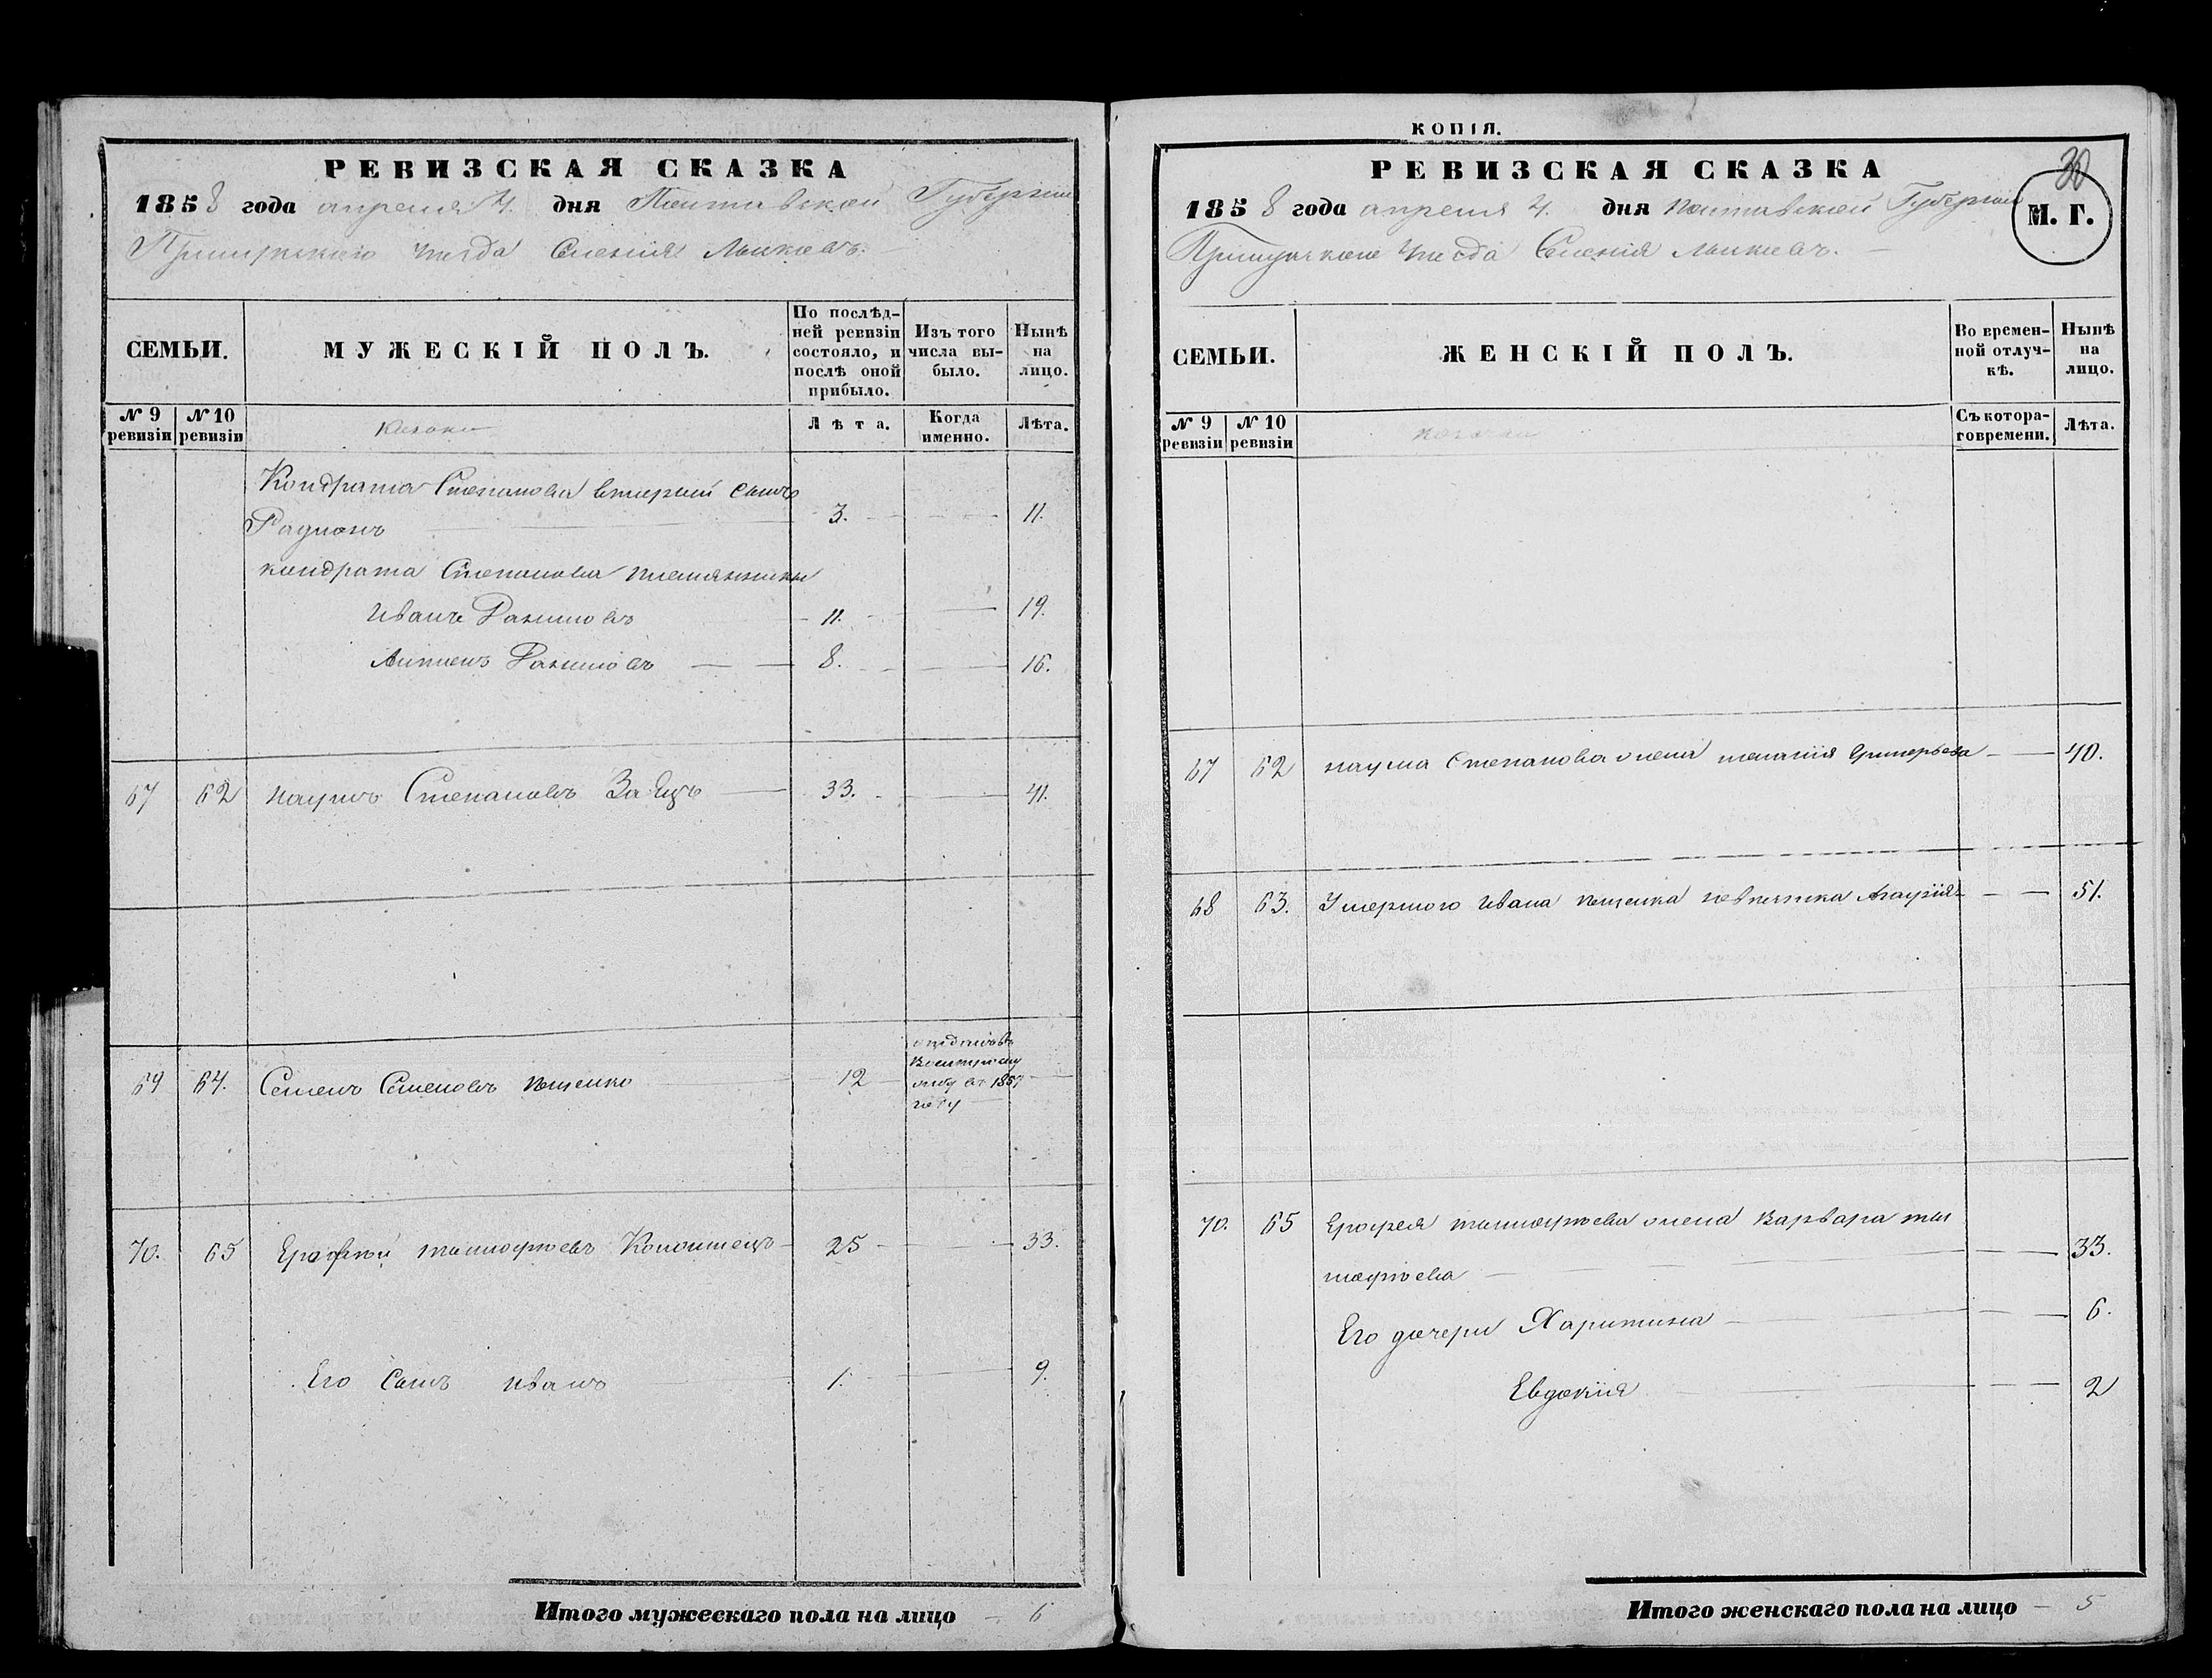 РЕВИЗСКАЯ СКАЗКА
1858 года апреля 4. дня Полтавской Губернии
Прилукского Уезда Селения Манжевъ.
СЕМЬИ.
МУЖЕСКІЙ ПОЛЪ.
По послѣд-
ней ревизіи
состояло, и
послѣ оной
прибыло.
Изъ того
числа вы-
было.
Нынѣ
на
лицо.
№ 9
ревизіи
№ 10
ревизіи
Казаки
Лѣта.
Когда
именно.
Лѣта.
Кондрата Степанова вторый сынъ
Радионъ 3. 11.
кондрата Степанова племянники
Иванъ 11. 19.
8. 16.
67 62 Наумъ Степановъ Заяцъ 33. 41.
отданъ въ
69 64. Семенъ Семеновъ Ященко 12 1857
году
70. 65 Ерофей Тимофеевъ Коношецъ 25 33.
Его Сынъ Иванъ 1. 9.
Итого мужескаго пола на лицо 6
КОПІЯ.
РЕВИЗСКАЯ СКАЗКА
30
М. Г.
1858 года апреля 4. дня Полтавской Губернии
Прилукского Уезда Селения
СЕМЬИ.
ЖЕНСКІЙ ПОЛЪ.
Во времен-
ной отлуч-
кѣ.
Нынѣ
на
лицо.
№ 9
ревизіи
№ 10
ревизіи
Съ котора-
го времени.
Лѣта.
67 62 Наума Степанова жена Григорьева 40.
68 63. Умершого Ивана Ященка невестка 51.
70. 65 Ерофея Тимофеева жена Варвара Ти
мофеева 33.
Его дочери Харитина 6.
Евдокия 2
Итого женскаго пола на лицо 5